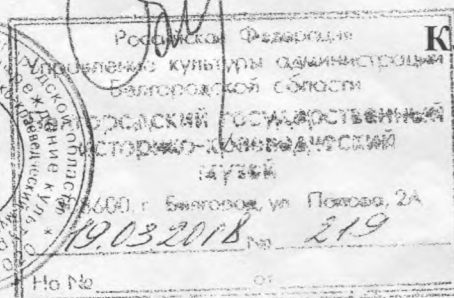 Российская Федерация К
Управление культуры администрации
Белгородской области
государственный
историко-краеведческий
музей
г. Белгород, ул. Попова, 2А
19.03.2018 № 219
На № от